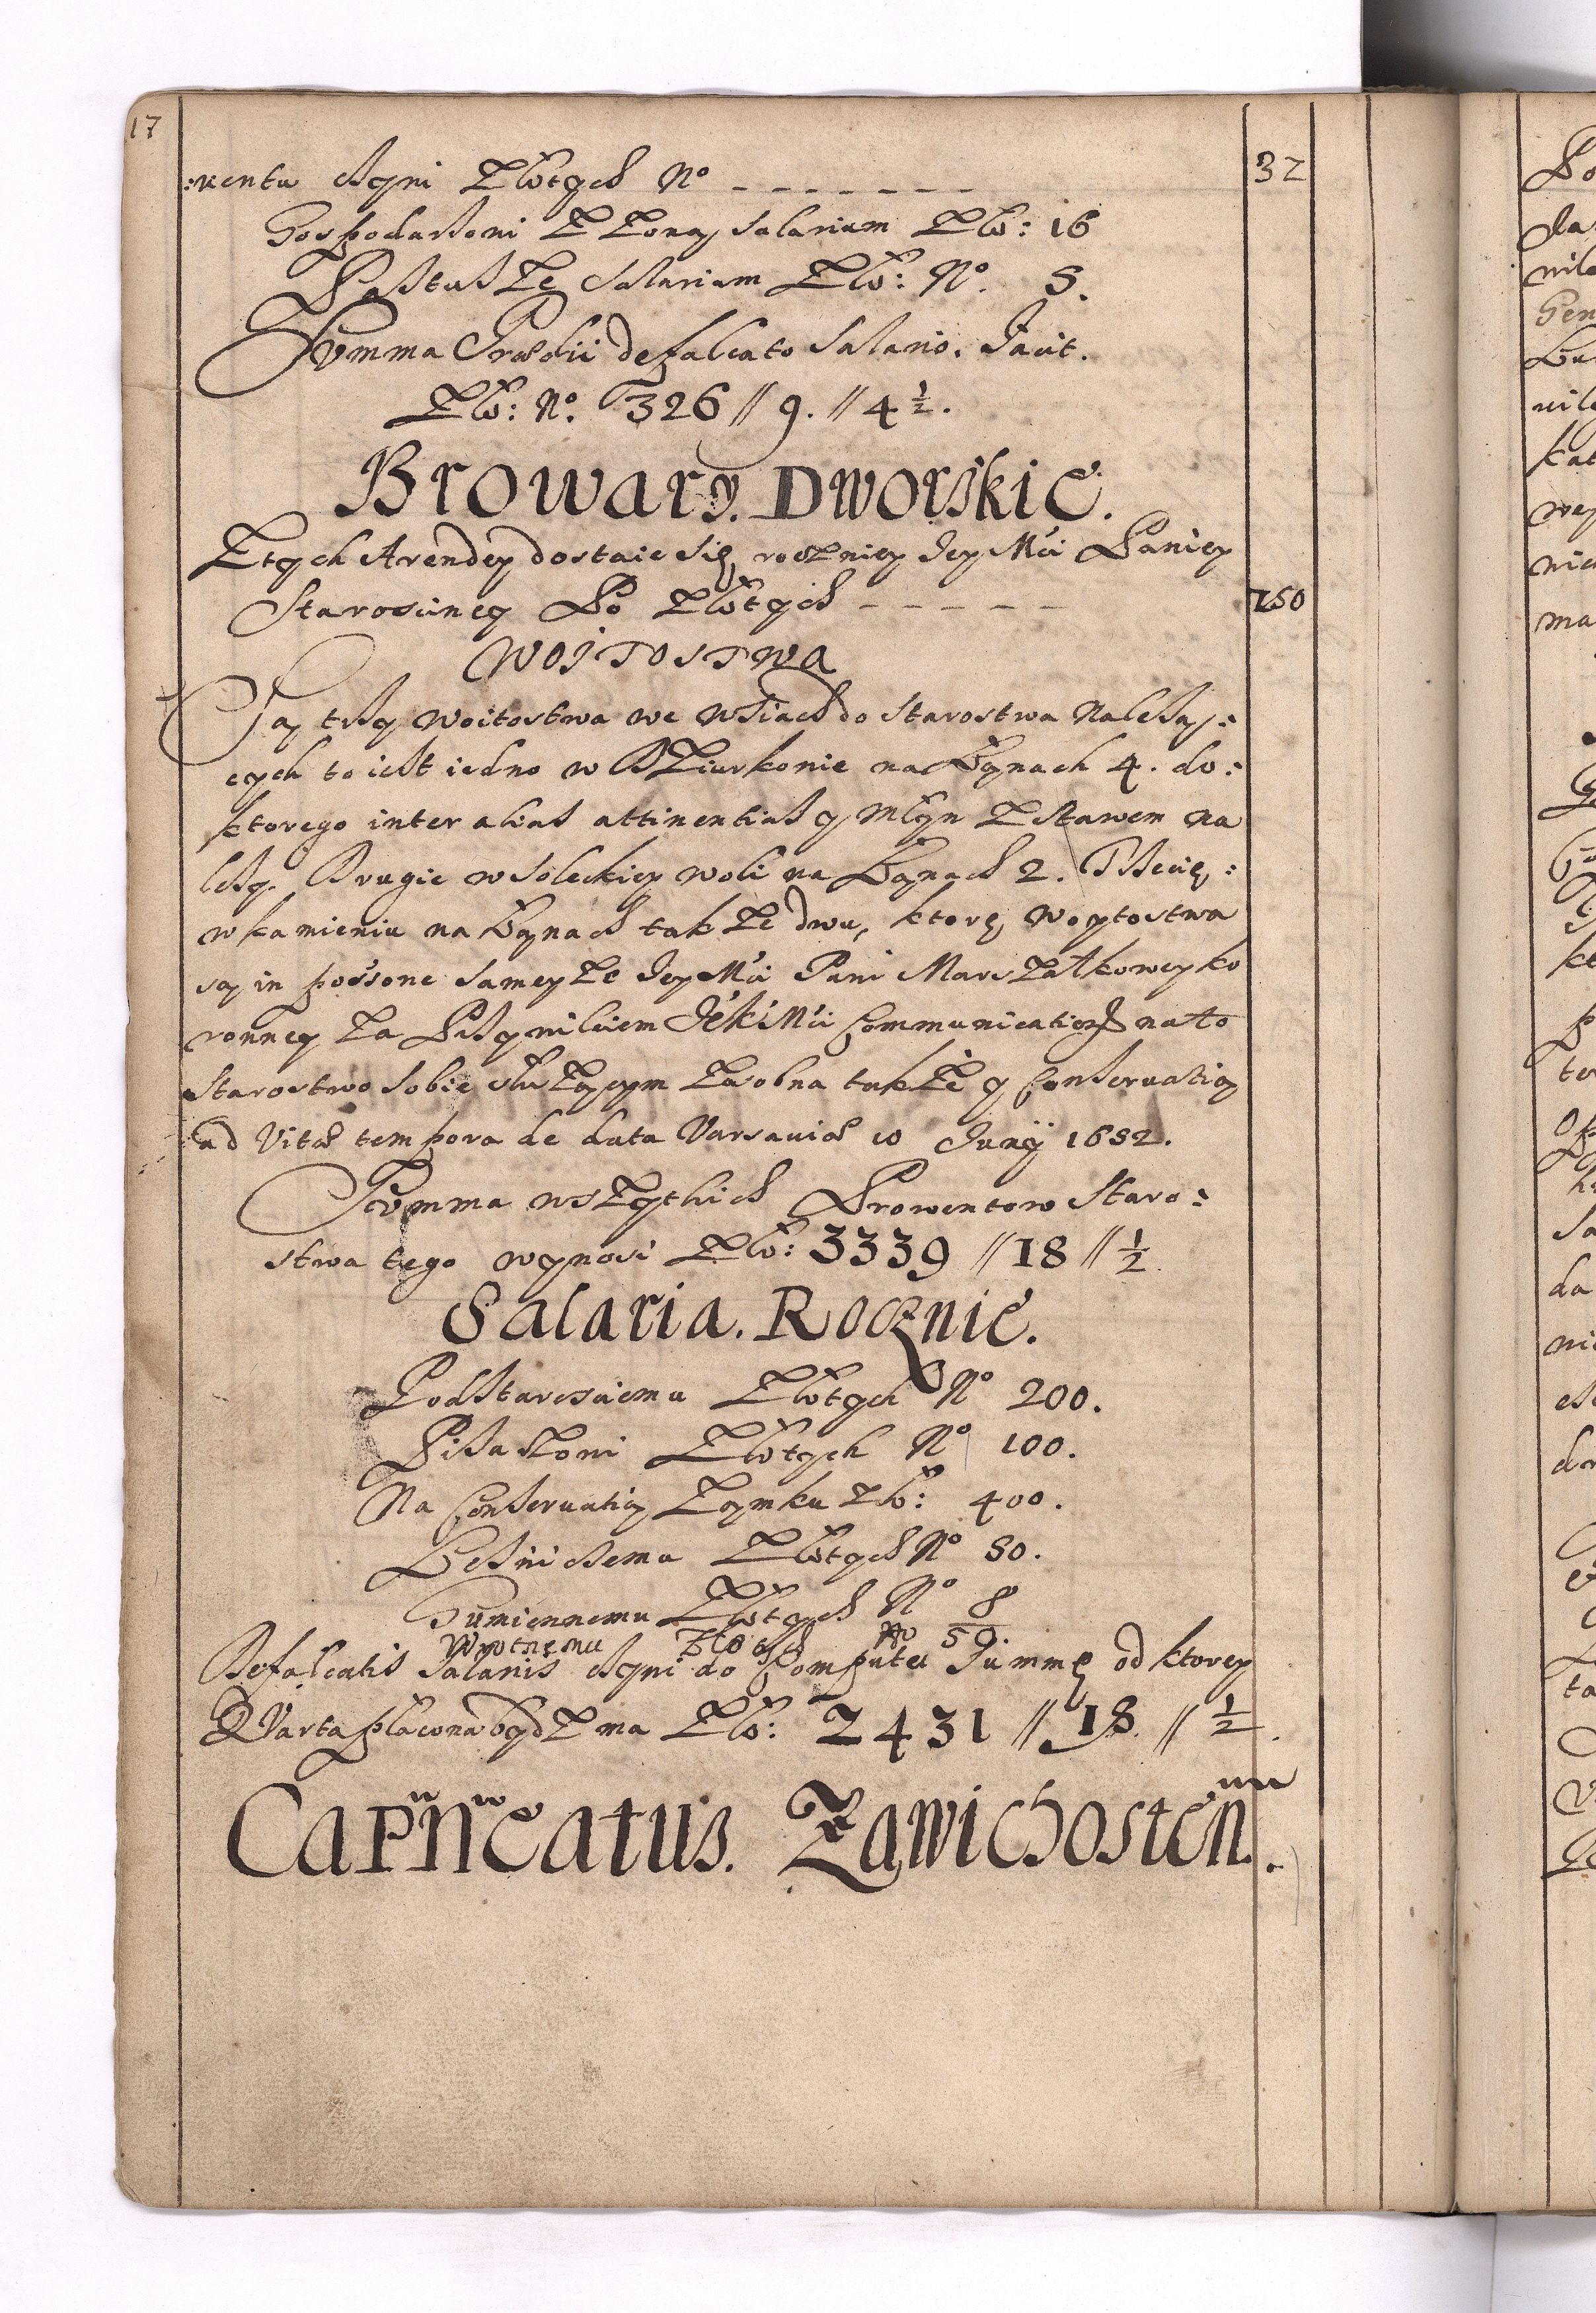 17
:wentu czyni Złotych No _ _ _ _ _ _ _ 32
Gospodarzowi z Zoną Salarium Zło: 16
Pastusze Salarium Zło: No. 8.
Summa Prædii defalcato Salario. Facit.
Zło: No. 326 // 9. // 4 1/2.
Browary. Dworskie.
Z tych Arendey dostaie się roczniey Jey Mci Paniey
Starościney Po Złotych _ _ _ _ _ 250
WOJTOSTWA
Są trzy woitostwa we wsiach do Starostwa Należą:
cych to iest iedno w Dziurkowie na Łanach 4. do:
ktorego inter alias attinentias y Młyn z Stawem na
leży. Drugie w Soleckiey woli na Łanach 2. Trzecie:
w kamieniu na Łanach takze dwu, ktore woytostwa
są in possone sameyze Jey Mci Pani Marszałkowey ko
ronney za Przywileiem JéKi Mci Communicationis na to
Starostwo sobie służącym zarobna także y Conservatią
ad Vitæ tempora de data Varsaviæ 10 Junÿ 1682.
Summa wszytkich Prowentow Staro:
stwa tego wynosi Zło: 3339 // 18 // 1/2.
Salaria. Rocznie.
Podstarosciemu Złotych No 200.
Pisarzowi Złotych No 100.
Na Conservatią Zamku Zło: 400.
Leśniczemu Złotych No 80.
Gumiennemu Złotych No 8
Wrotnemu Złotych No 50.
Defalcatis Salariis czyni do Computu Summę od ktorey
QVarta płacona bydz ma Zło: 2431 // 18. // 1/2.
CaPneatus. Zawichosten.